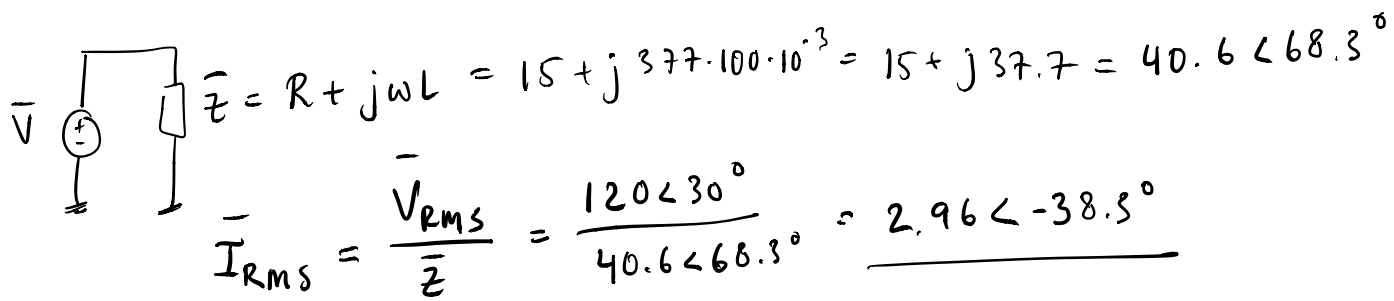 V̅ + - Z̅ = R + jωL = 15 + j 377·100·10⁻³ = 15 + j 37.7 = 40.6 < 68.3°
I̅RMS = V̅RMS / Z̅ = 120<30° / 40.6<68.3° = 2.96 < -38.3°